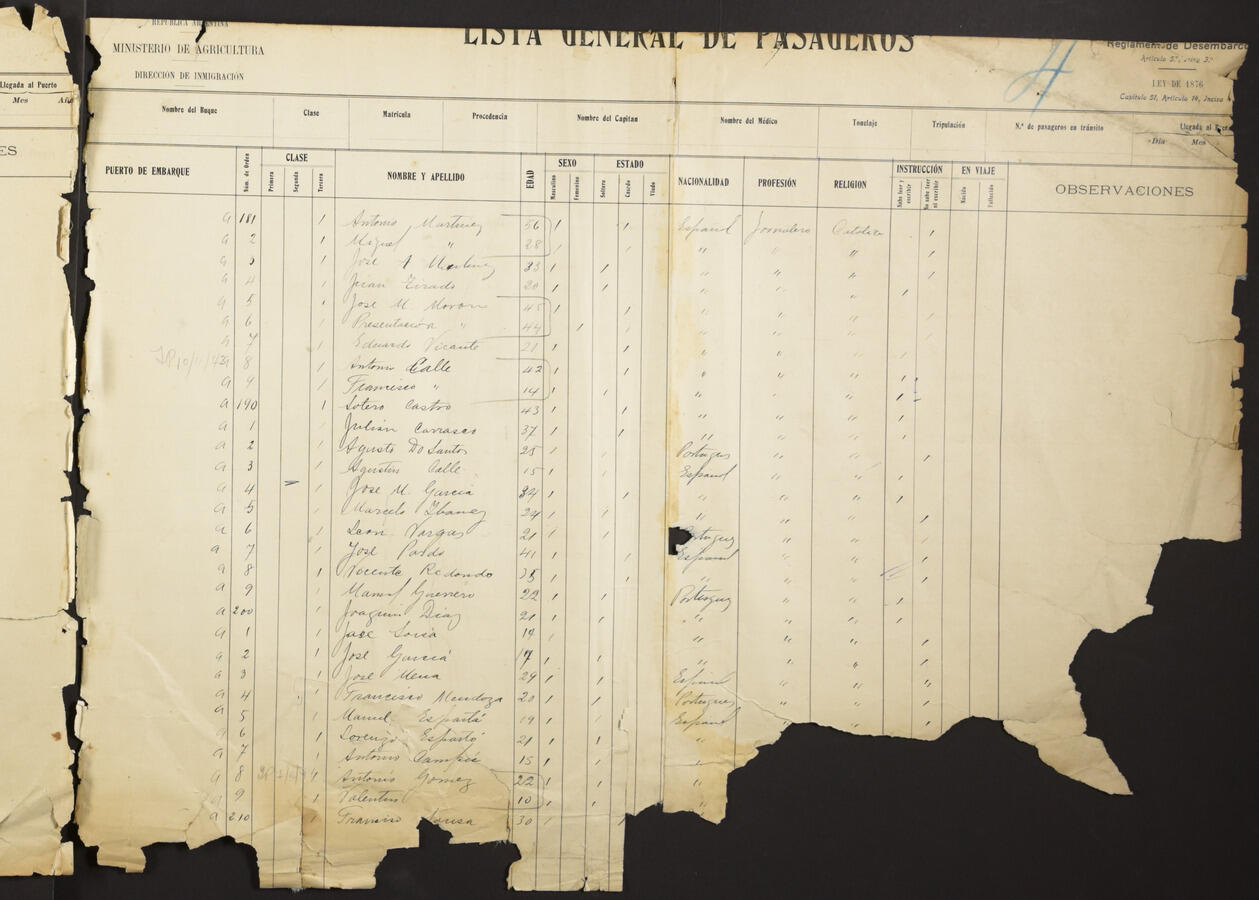 Llegada al Puerto
Mes Añ
ES
REPÚBLICA ARGENTINA
MINISTERIO DE AGRICULTURA
DIRECCIÓN DE INMIGRACIÓN
LISTA GENERAL DE PASAGEROS
4
Reglamento de Desembarco
Artículo 5º, inciso 3º
LEY DE 1876
Capítulo 51, Artículo 14, Inciso
Nombre del Buque Clase Matrícula Procedencia Nombre del Capitan Nombre del Médico Tonelaje Tripulación N.º de pasageros en tránsito Llegada al Puerto
Dia Mes
PUERTO DE EMBARQUE Núm. de Orden CLASE Primera Segunda Tercera NOMBRE Y APELLIDO EDAD SEXO Masculino Femenino ESTADO Soltero Casado Viudo NACIONALIDAD PROFESIÓN RELIGION INSTRUCCIÓN Sabe leer y escribir No sabe leer ni escribir EN VIAJE Nacido Fallecido OBSERVACIONES
a 181 1 Antonio Martinez 56 1 1 Español Jornalero Católica 1
a 2 1 Miguel " 28 1 1 " " " 1
a 3 1 Jose A Martinez 33 1 1 " " " 1
a 4 1 Juan Tirado 20 1 1 " " " 1
a 5 1 Jose M. Moron 45 1 1 " " "
a 6 1 Presentación " 44 1 " " "
a 7 1 Eduardo Vicante 21 1 1 " " "
a 8 1 Antonio Calle 42 1 1 " " " 1
a 9 1 Francisco " 14 1 1 " " " 1
a 190 1 Sotero Castro 43 1 1 " " " 1
a 1 1 Julián Carrasco 37 1 1 " " " 1
a 2 1 Agusto Do Santos 25 1 1 Portugues " " 1
a 3 1 Agustin Calle 15 1 1 Español " " 1
a 4 1 Jose M. Garcia 34 1 1 " " " 1
a 5 1 Marcelo Ibanez 24 1 1 " " " 1
a 6 1 Leon Vargas 21 1 1 Portuguez " " 1
a 7 1 Jose Pardo 41 1 1 Español " " 1
a 8 1 Vicente Redondo 35 1 1 " " " 1
a 9 1 Manuel Guerrero 22 1 1 Portuguez " " 1
a 200 1 Joaquin Diaz 21 1 1 " " " 1
a 1 1 Jose 19 1 " " " 1
a 2 1 Jose Garcia 17 1 1 " " " 1
a 3 1 Jose Mena 29 1 1 Español " " "
a 4 1 Francisco Mendoza 20 1 1 Portuguez " " 1
a 5 1 Manuel 19 1 1 Español " " 1
a 6 1 Lorenzo 21 1 1 "
a 7 1 Antonio 15 1 1
a 8 1 Antonio Gomez 22 1 1 "
a 9 1 Valentin 10 1 1 "
a 210 Francisco Sousa 30 1